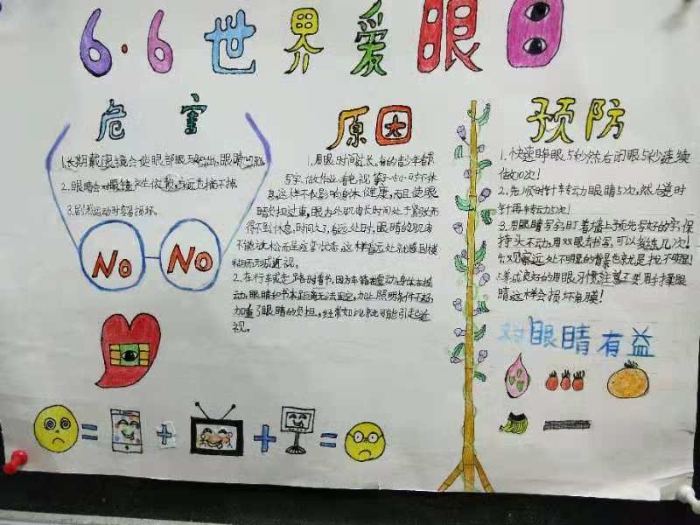 6·6世界爱眼日
危害
1.长期戴眼镜会使眼部
2.眼睛会对眼镜产生依
3.剧烈运动时容易损坏。
No No
原因
1.用眼时间过长,有的青少年都
写字、做作业、看电视
息,这样不仅影响身体健康,而且使眼
睛负担过重,眼内外肌肉长时间处于紧张而
得不到休息,时间久了,当看远处时,眼睛的肌肉
不能放松而呈痉挛状态,这样看远处就感到模
糊而形成近视。
2.在行车或走路时看书,因为车辆震动、身体在摇
动,眼睛和书本距离无法固定,加上照明条件不好,
加重了眼睛的负担,经常如此就可能引起近
视。
预防
1.快速眨眼5秒然后闭眼5秒连续
做10次!
2.先顺时针转动眼睛5次,然后逆时
针再转动5次!
3.用眼睛写字,盯着墙上预先写好的字,保
持头不动,用双眼去书写,可以多练几次!
4.观察远处不明显的背景
5.养成良好的用眼习惯注意不要用手揉眼
睛这样会损坏角膜!
对眼睛有益
= + + =